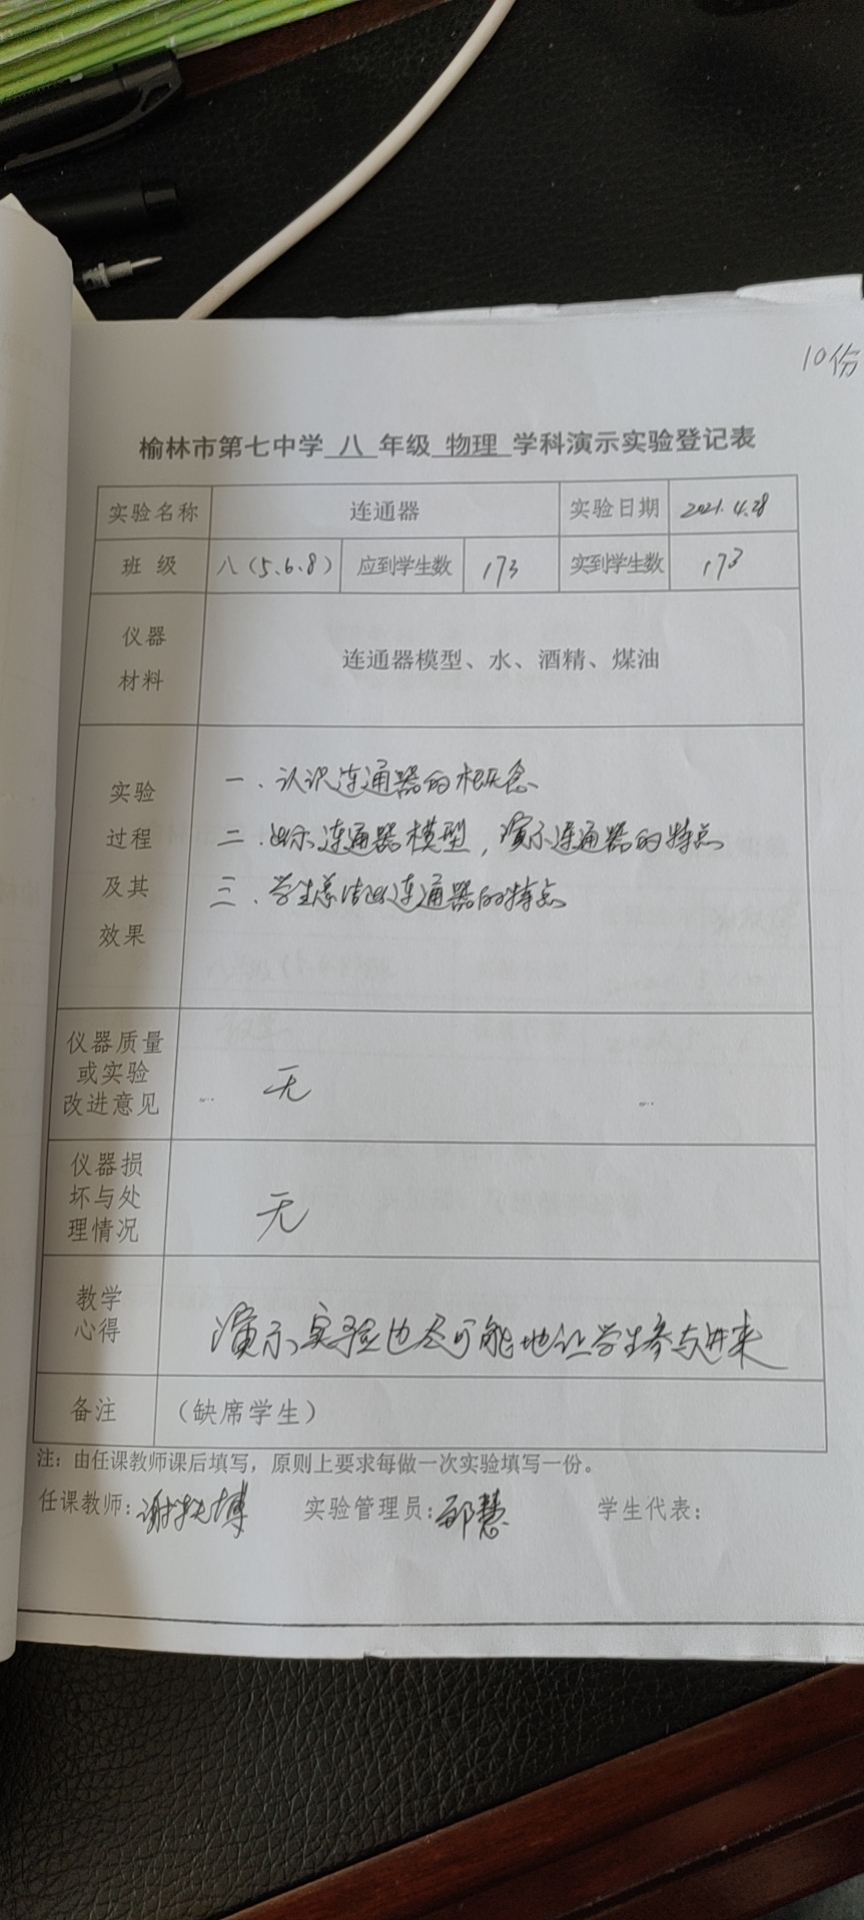 10份
榆林市第七中学 八 年级 物理 学科演示实验登记表
实验名称 连通器 实验日期 2021.4.28
班 级 八（5.6.8） 应到学生数 173 实到学生数 173
仪器
材料
连通器模型、水、酒精、煤油
实验
过程
及其
效果
一．认识连通器的概念
二．出示连通器模型，演示连通器的特点
三．学生总结出连通器的特点
仪器质量
或实验
改进意见
无
仪器损
坏与处
理情况
无
教学
心得
演示实验也尽可能地让学生参与进来
备注 （缺席学生）
注：由任课教师课后填写，原则上要求每做一次实验填写一份。
任课教师：谢 博 实验管理员：慧 学生代表：